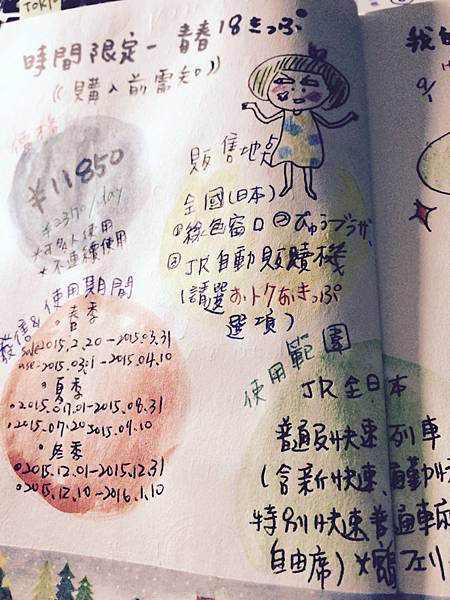 TOKYO
時間限定-青春18きっぷ
((購入前需知))
優惠
¥11850
¥2370/day
*可多人使用
*不連續使用
發售&使用期間
•春季
sale:2015.2.20-2015.03.31
use:2015.03.1-2015.04.10
•夏季
•2015.07.01-2015.08.31
•2015.07.20-2015.09.10
•冬季
•2015.12.01-2015.12.31
•2015.12.10-2016.1.10
販售地点
全國(日本)
①綠色窗口②びゅうプラザ、
③JR自動販賣機
(請選おトクなきっぷ
選項)
使用範圍
JR全日本
普通及快速列車
(含新快速、
特別快速普通車廂
自由席)
フェリ
我的